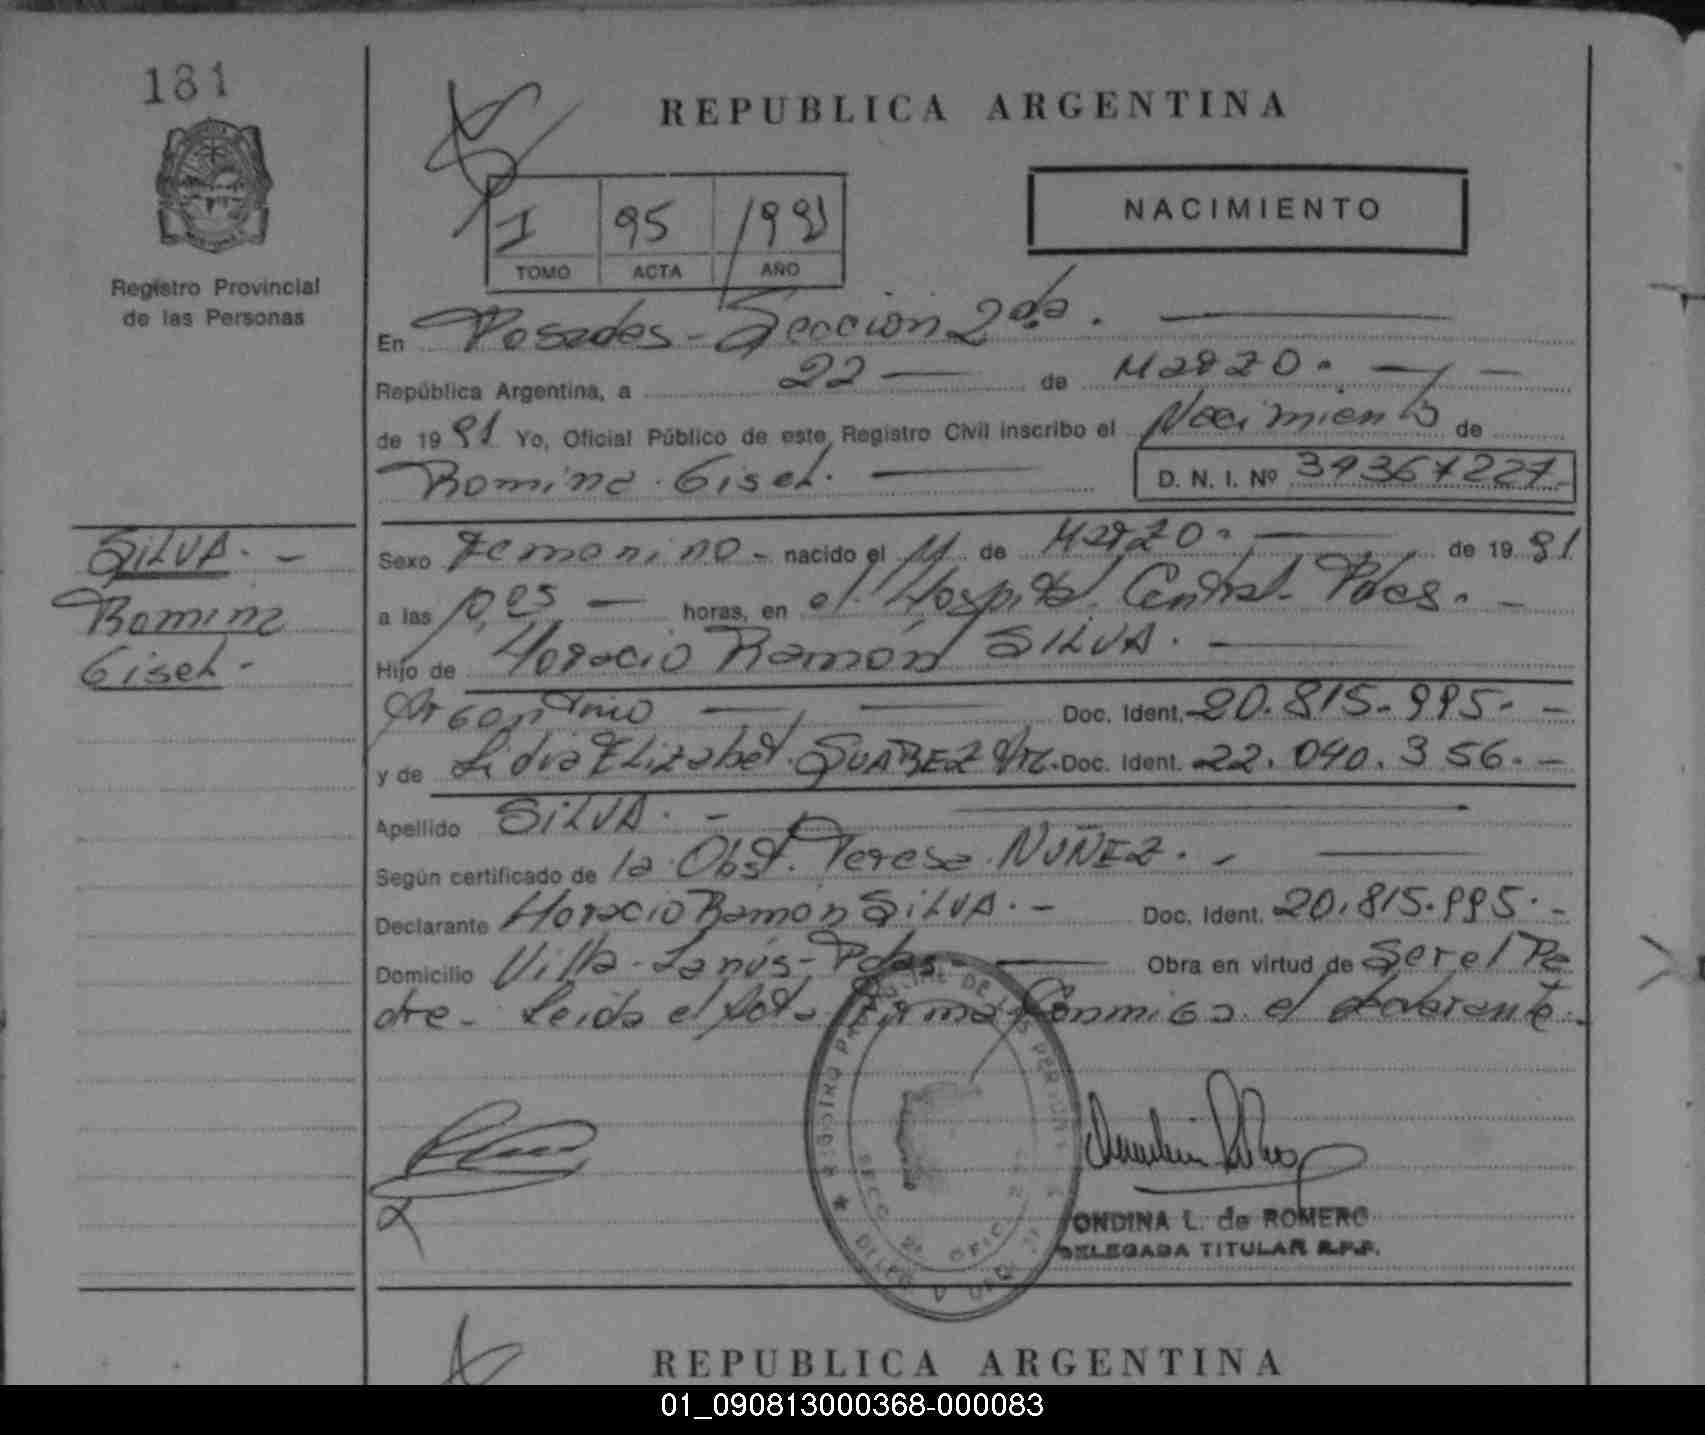 181
REPUBLICA ARGENTINA
NACIMIENTO
I 95 1991
TOMO ACTA AÑO
Registro Provincial
de las Personas
En Posadas - Sección 2da.
República Argentina, a 22 de Marzo.
de 19 91 Yo, Oficial Público de este Registro Civil inscribo el Nacimiento de
Romina Gisel. D. N. I. Nº
SILVA.
Romina
Gisel.
Sexo Femenino - nacido el 11 de Marzo. de 19 91
a las horas, en el Hospital Central - Pdas.
Hijo de Horacio Ramón SILVA.
Argentino Doc. Ident. 20.815.995.
y de Lidia Elizabet SUAREZ Doc. Ident. 22.040.356.
Apellido SILVA.
Según certificado de la Obst. Teresa NUÑEZ.
Declarante Horacio Ramón SILVA. Doc. Ident. 20.815.995.
Domicilio Villa Lanús - Pdas Obra en virtud de Ser el Pa
dre - Leida el Acta Firma Conmigo el declarante.
ONDINA L. de ROMERO
DELEGADA TITULAR R.P.P.
REPUBLICA ARGENTINA
01_090813000368-000083